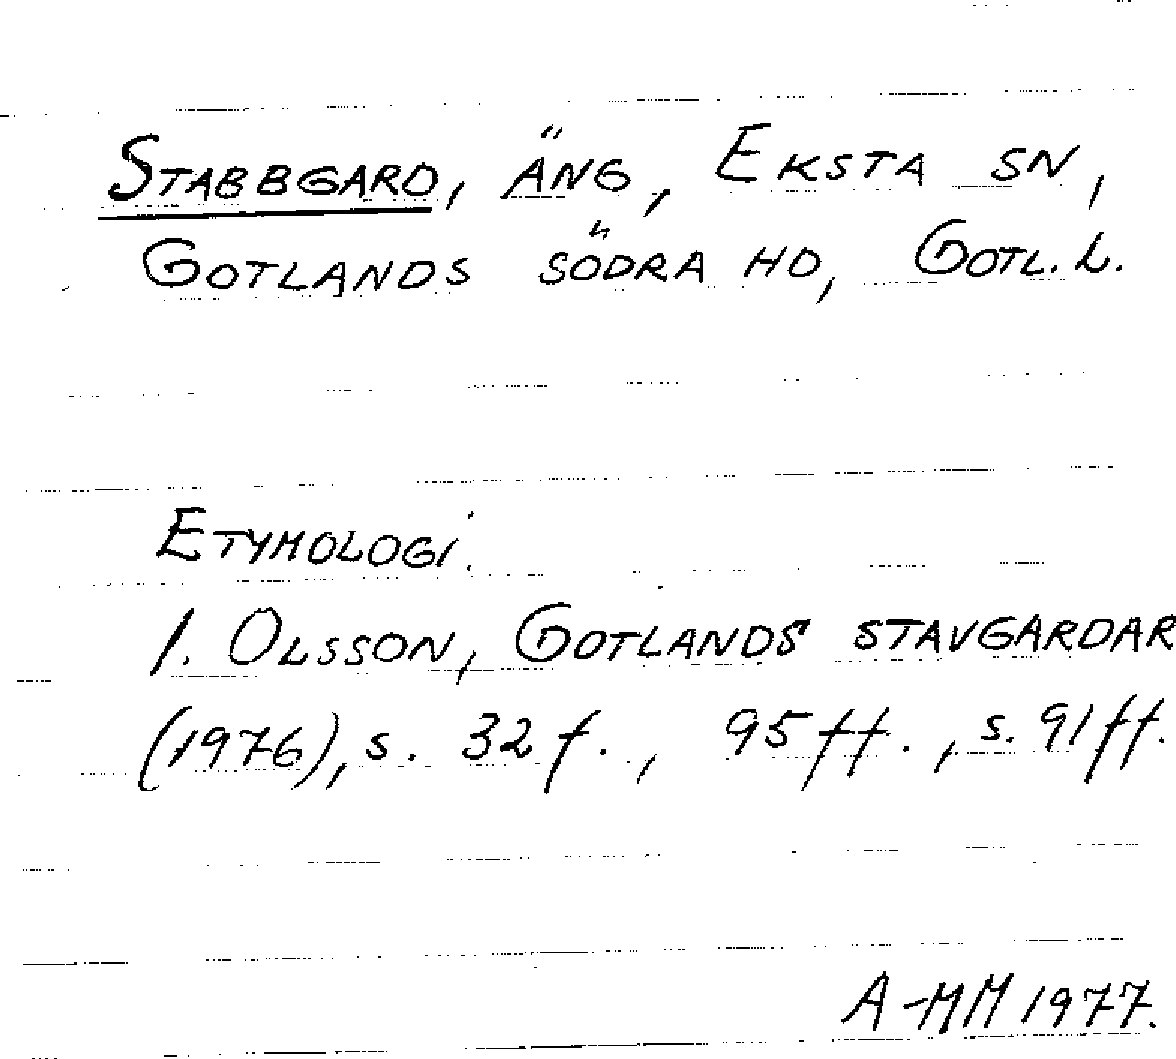 STABBGARD, ÄNG, EKSTA SN,
GOTLANDS SÖDRA HD, GOTL. L.
ETYMOLOGI.
I. OLSSON, GOTLANDS STAVGARDAR
(1976), s. 32 f., 95 ff., s. 91 ff.
A-MM 1977.